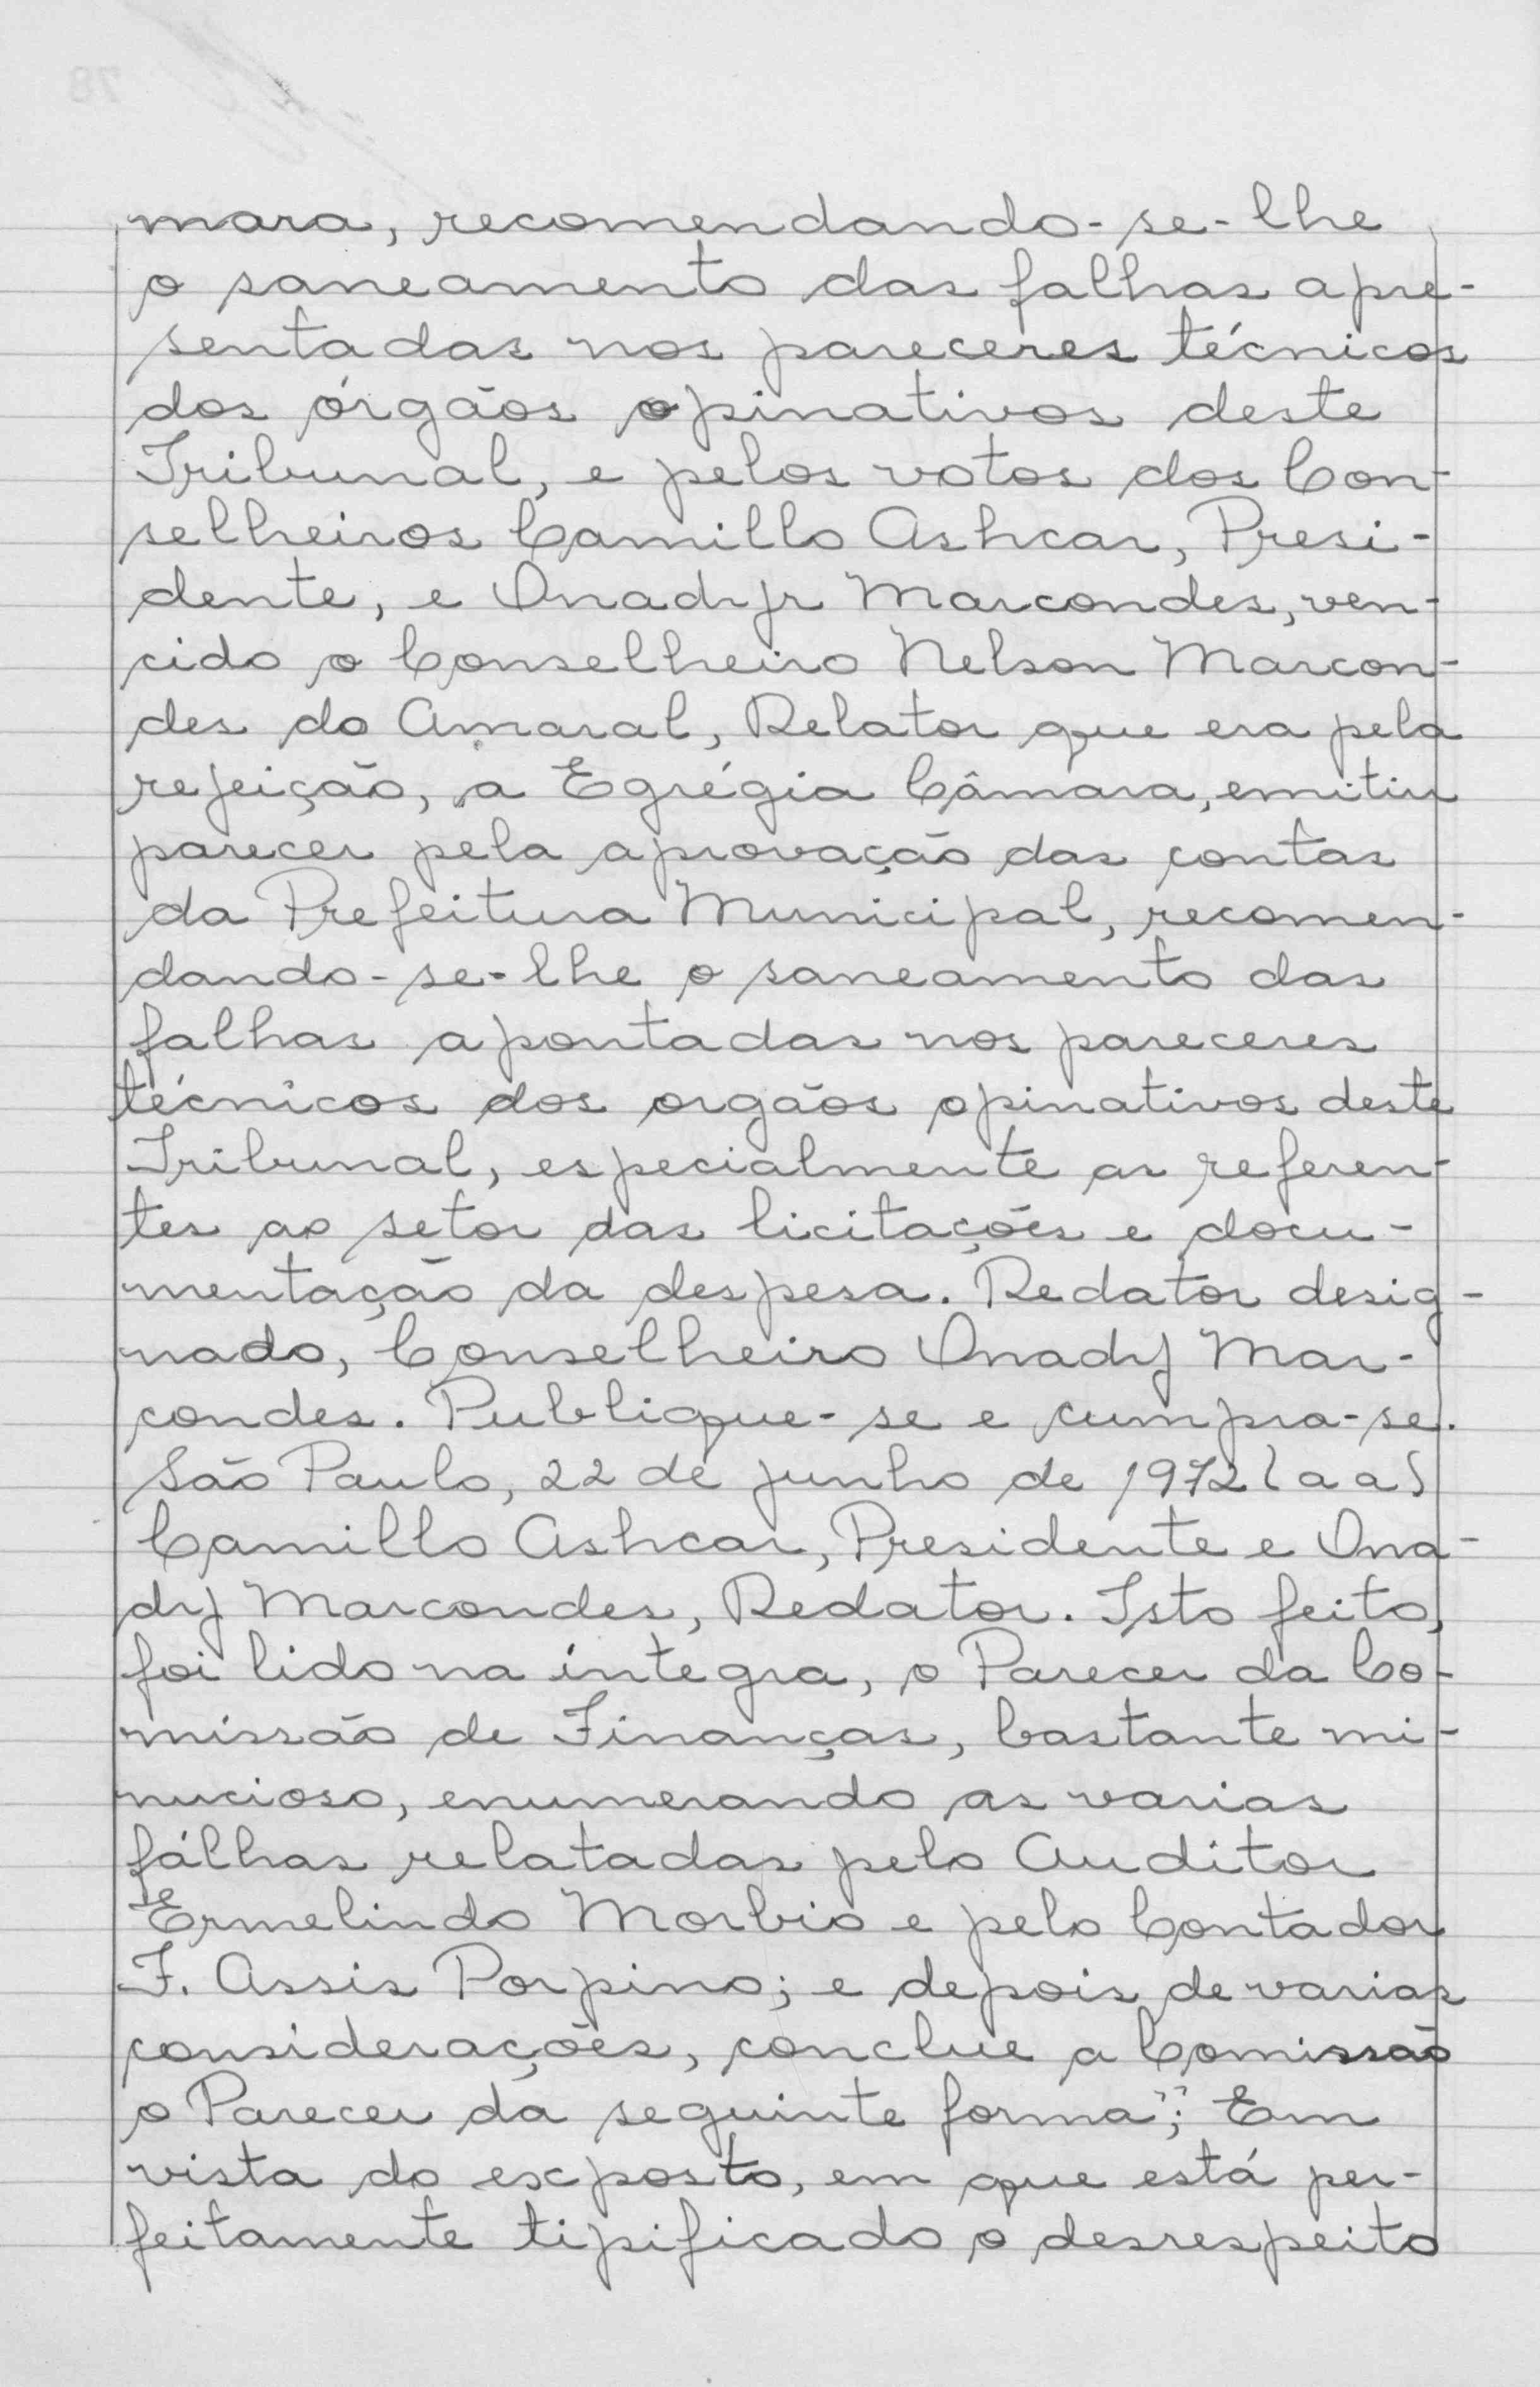 mara, recomendando-se-lhe
o saneamento das falhas apre-
sentadas nos pareceres técnicos
dos órgãos opinativos deste
Tribunal, e pelos votos dos Con-
selheiros Camillo Ashcar, Presi-
dente, e Onadyr Marcondes, ven-
cido o Conselheiro Nelson Marcon-
des do Amaral, Relator que era pela
rejeição, a Egrégia Câmara, emitiu
parecer pela aprovação das contas
da Prefeitura Municipal, recomen-
dando-se-lhe o saneamento das
falhas apontadas nos pareceres
técnicos dos orgãos opinativos deste
Tribunal, especialmente as referen-
tes ao setor das licitações e docu-
mentação da despesa. Redator desig-
nado, Conselheiro Onady Mar-
condes. Publique-se e cumpra-se.
São Paulo, 22 de junho de 1972 (a a)
Camillo Ashcar, Presidente e Ona-
dy Marcondes, Redator. Isto feito,
foi lido na íntegra, o Parecer da Co-
missão de Finanças, bastante mi-
nucioso, enumerando as varias
fálhas relatadas pelo Auditor
Ermelindo Morbio e pelo Contador
F. Assis Porpino; e depois de varias
considerações, conclue a Comissão
o Parecer da seguinte forma"; Em
vista do exposto, em que está per-
feitamente tipificado o desrespeito